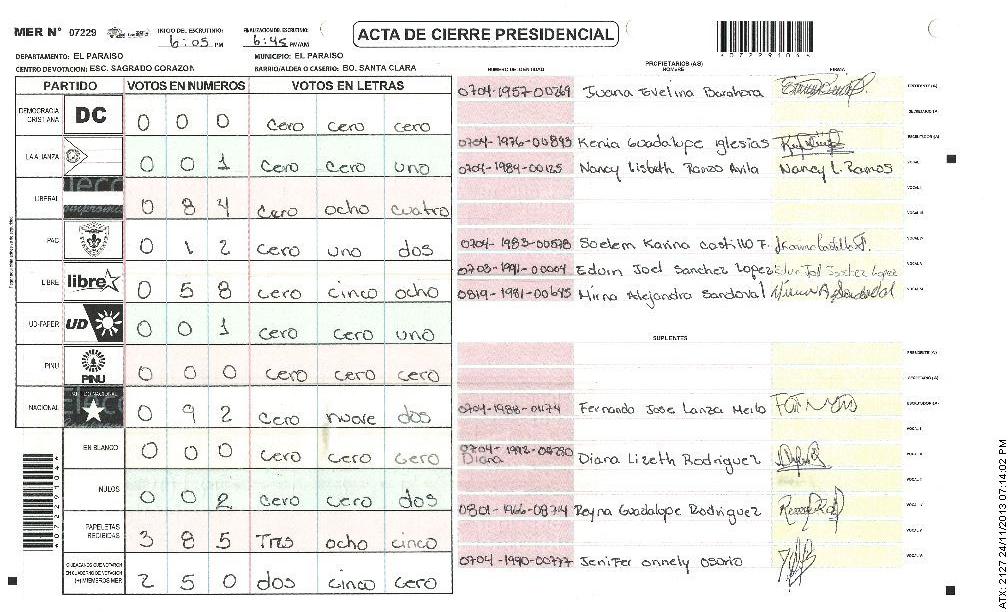 MER Nº 07229 INICIO DEL ESCRUTINIO: 6:05 PM FINALIZACION DEL ESCRUTINIO: 6:45 PM/AM
ACTA DE CIERRE PRESIDENCIAL
DEPARTAMENTO: EL PARAISO MUNICIPIO: EL PARAISO
CENTRO DE VOTACION: ESC. SAGRADO CORAZON BARRIO/ALDEA O CASERIO: BO. SANTA CLARA
PARTIDO VOTOS EN NUMEROS VOTOS EN LETRAS
DEMOCRACIA CRISTIANA DC 0 0 0 cero cero cero
LA ALIANZA 0 0 1 cero cero uno
LIBERAL 0 8 4 cero ocho cuatro
PAC 0 1 2 cero uno dos
LIBRE libre 0 5 8 cero cinco ocho
UD-FAPER UD 0 0 1 cero cero uno
PINU PINU 0 0 0 cero cero cero
NACIONAL 0 9 2 cero nueve dos
EN BLANCO 0 0 0 cero cero cero
NULOS 0 0 2 cero cero dos
PAPELETAS RECIBIDAS 3 8 5 Tres ocho cinco
CIUDADANOS QUE VOTARON EN CUADERNO DE VOTACION (+) MIEMBROS MER 2 5 0 dos cinco cero
07229104
PROPIETARIOS (AS)
NUMERO DE IDENTIDAD NOMBRE FIRMA
Juana Evelina Barahona PRESIDENTE (A)
SECRETARIO (A)
0704-1976-00893 Kenia Guadalupe iglesias ESCRUTADOR (A)
0704-1984-00125 Nancy Lisbeth Ponzo Avila Nancy L. Ramos VOCAL I
VOCAL II
VOCAL III
0704-1983-00878 Soelem Karina castillo F. VOCAL IV
0703-1991-00004 Edwin Joel Sanchez Lopez Edwin Joel Sanchez Lopez VOCAL V
0819-1981-00645 Mirna Alejandra Sandoval VOCAL VI
SUPLENTES
PRESIDENTE (A)
SECRETARIO (A)
0704-1988-01174 Fernando Jose Lanza Merlo ESCRUTADOR (A)
VOCAL I
Diana Diana Lizeth Rodriguez VOCAL II
VOCAL III
0801-1966-08714 Reyna Guadalupe Rodriguez VOCAL IV
VOCAL V
0704-1990-00777 Jenifer onnely osorio VOCAL VI
0722910 4
ATX: 2127 24/11/2013 07:14:02 PM